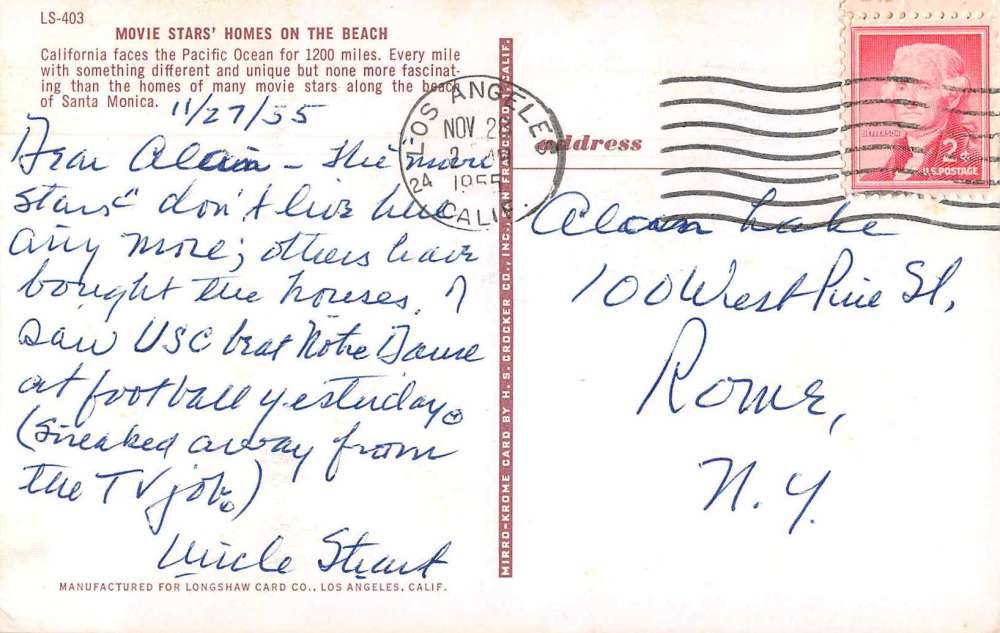 LS-403
MOVIE STARS' HOMES ON THE BEACH
California faces the Pacific Ocean for 1200 miles. Every mile
with something different and unique but none more fascinat-
ing than the homes of many movie stars along the beach
of Santa Monica.
11/27/55
Dear Alan – The movie
stars don't live here
any more; others have
bought the houses. I
saw USC beat Notre Dame
at football yesterday.
(Sneaked away from
the TV job.)
Uncle Stuart
MANUFACTURED FOR LONGSHAW CARD CO., LOS ANGELES, CALIF.
MIRRO-KROME CARD BY H. S. CROCKER CO., INC., SAN FRANCISCO, CALIF.
LOS ANGELES
NOV 28
1955
24
CALIF.
address
JEFFERSON
2¢
U.S. POSTAGE
Alan Lake
100 West Pine St,
Rome,
N.Y.